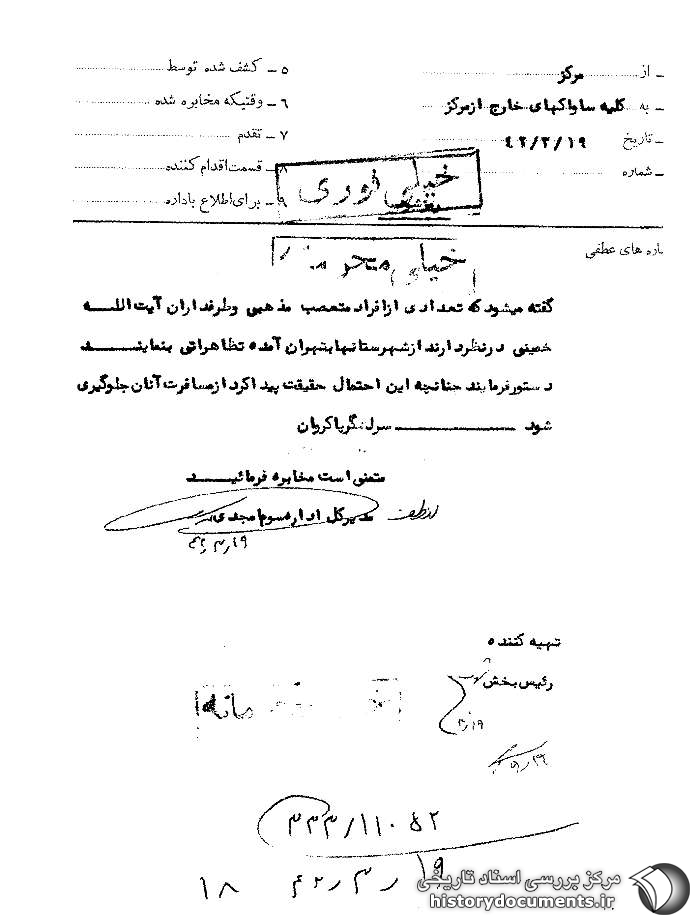 از مرکز
به کلیه ساواکهای خارج ازمرکز
تاریخ ۴۲/۳/۱۹
شماره
۵ – کشف شده توسط
۶ – وقتیکه مخابره شده
۷ – تقدم
۸ – قسمت اقدام کننده
۹ – برای اطلاع باداره
خیلی فوری
خیلی محرمانه
گفته میشود که تعدادی ازافراد متعصب مذهبی وطرفداران آیت الله
خمینی درنظر دارند ازشهرستانها بتهران آمده تظاهراتی بنمایند
دستور فرمایند چنانچه این احتمال حقیقت پیدا کرد ازمسافرت آنان جلوگیری
شود سرلشگر پاکروان
متمنی است مخابره فرمائید
مدیرکل اداره سوم امجدی
۴۲/۳/۱۹
تهیه کننده
رئیس بخش
۳/۱۹
۳۳۳/۱۱۰۵۲
۴۲/۳/۱۹
۱۸
مرکز بررسی اسناد تاریخی
historydocuments.ir